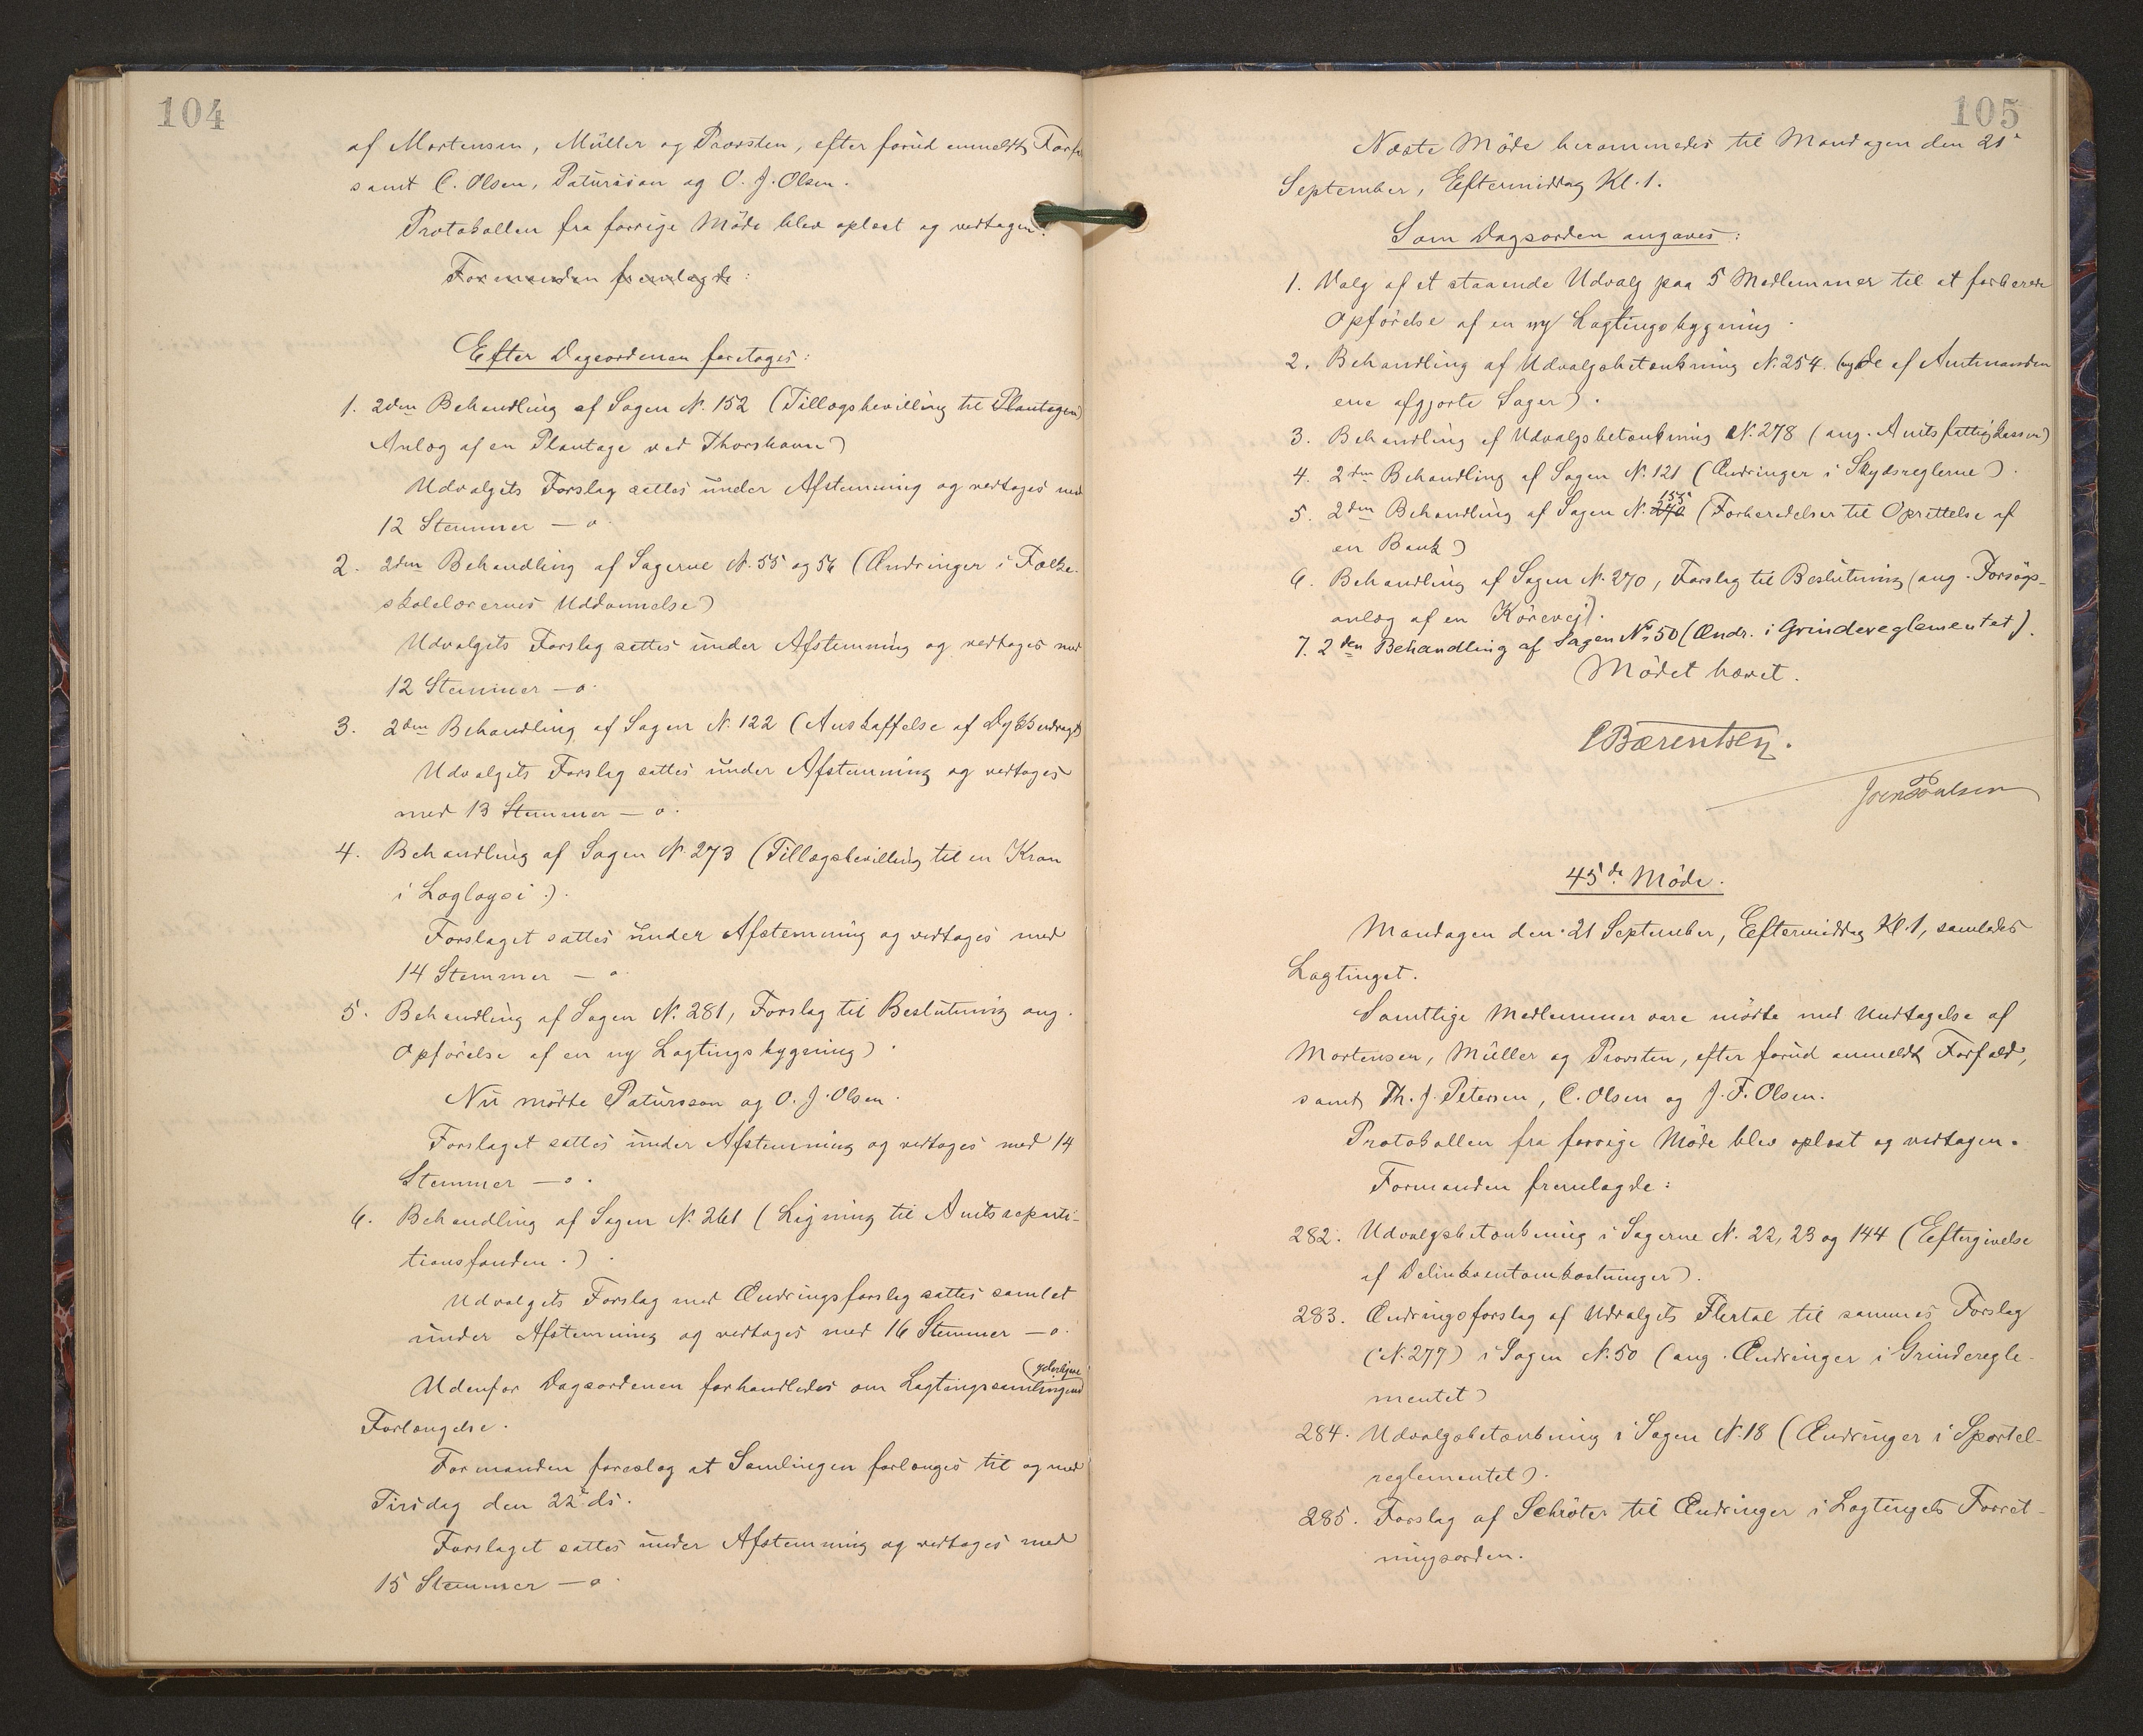 104
af Mortensen, Müller og Provsten, efter forud anmeldt Forf
samt C. Olsen, Patursson og O. J. Olsen.
Protokollen fra forrige Møde blev oplæst og vedtagen.
Formanden fremlagde:
Efter Dagsordenen foretoges:
1. 2den Behandling af Sagen N. 152 (Tillægsbevilling til Plantagen
Anlæg af en Plantage ved Thorshavn)
Udvalgets Forslag sattes under Afstemning og vedtoges med
12 Stemmer – o.
2. 2den Behandling af Sagerne N. 55 og 56 (Ændringer i Folke-
skolelærernes Uddannelse)
Udvalgets Forslag sattes under Afstemning og vedtoges med
12 Stemmer – o.
3. 2den Behandling af Sagen N. 122 (Anskaffelse af Dykkerdragt)
Udvalgets Forslag sattes under Afstemning og vedtoges
med 13 Stemmer – o.
4. Behandling af Sagen N. 273 (Tillægsbevilling til en Kran
i Lagloyri.)
Forslaget sattes under Afstemning og vedtoges med
14 Stemmer – o
5. Behandling af Sagen N. 281, Forslag til Beslutning ang.
Opførelse af en ny Lagtingsbygning)
Nu mødte Patursson og O. J. Olsen.
Forslaget sattes under Afstemning og vedtoges med 14
Stemmer – o.
6. Behandling af Sagen N. 261 (Ligning til Amtsreparti-
tionsfonden.)
Udvalgets Forslag med Ændringsforslag sattes samlet
under Afstemning og vedtoges med 16 Stemmer – o.
(yderligere
Udenfor Dagsordenen forhandledes om Lagtingssamlingens
Forlængelse.
Formanden foreslog at Samlingen forlænges til og med
Tirsdag den 22' ds.
Forslaget sattes under Afstemning og vedtoges med
15 Stemmer – o.
105
Næste Møde berammedes til Mandagen den 21'
September, Eftermiddag Kl. 1.
Som Dagsorden angaves:
1. Valg af et staaende Udvalg paa 5 Medlemmer til at forberede
Opførelse af en ny Lagtingsbygning.
2. Behandling af Udvalgsbetænkning N. 254. (ang de af Amtmanden
ene afgjorte Sager).
3. Behandling af Udvalgsbetænkning N. 278 (ang. Amtsfattigkassen)
4. 2den Behandling af Sagen N. 121 (Ændringer i Skydsreglerne).
155
5. 2den Behandling af Sagen N. 270 (Forberedelser til Oprettelse af
en Bank)
6. Behandling af Sagen N. 270, Forslag til Beslutning (ang. Forsøgs-
anlæg af en Kørevej).
7. 2den Behandling af Sagen Nr 50 (Ændr. i Grindereglementet).
Mødet hævet.
C Bærentsen.
Joen Poulsen
45de Møde.
Mandagen den 21 September, Eftermiddag Kl. 1, samledes
Lagtinget.
Samtlige Medlemmer vare mødte med Undtagelse af
Mortensen, Müller og Provsten, efter forud anmeldt Forfald,
samt Th. J. Petersen, C. Olsen og J. F. Olsen.
Protokollen fra forrige Møde blev oplæst og vedtagen.
Formanden fremlagde:
282. Udvalgsbetænkning i Sagerne N. 22, 23 og 144 (Eftergivelse
af Delinkventomkostninger).
283. Ændringsforslag af Udvalgets Flertal til sammes Forslag
(N. 277) i Sagen N. 50 (ang. Ændringer i Grinderegle-
mentet)
284. Udvalgsbetænkning i Sagen N. 18 (Ændringer i Sportel-
reglementet).
285. Forslag af Schrøter til Ændringer i Lagtingets Forret-
ningsorden.